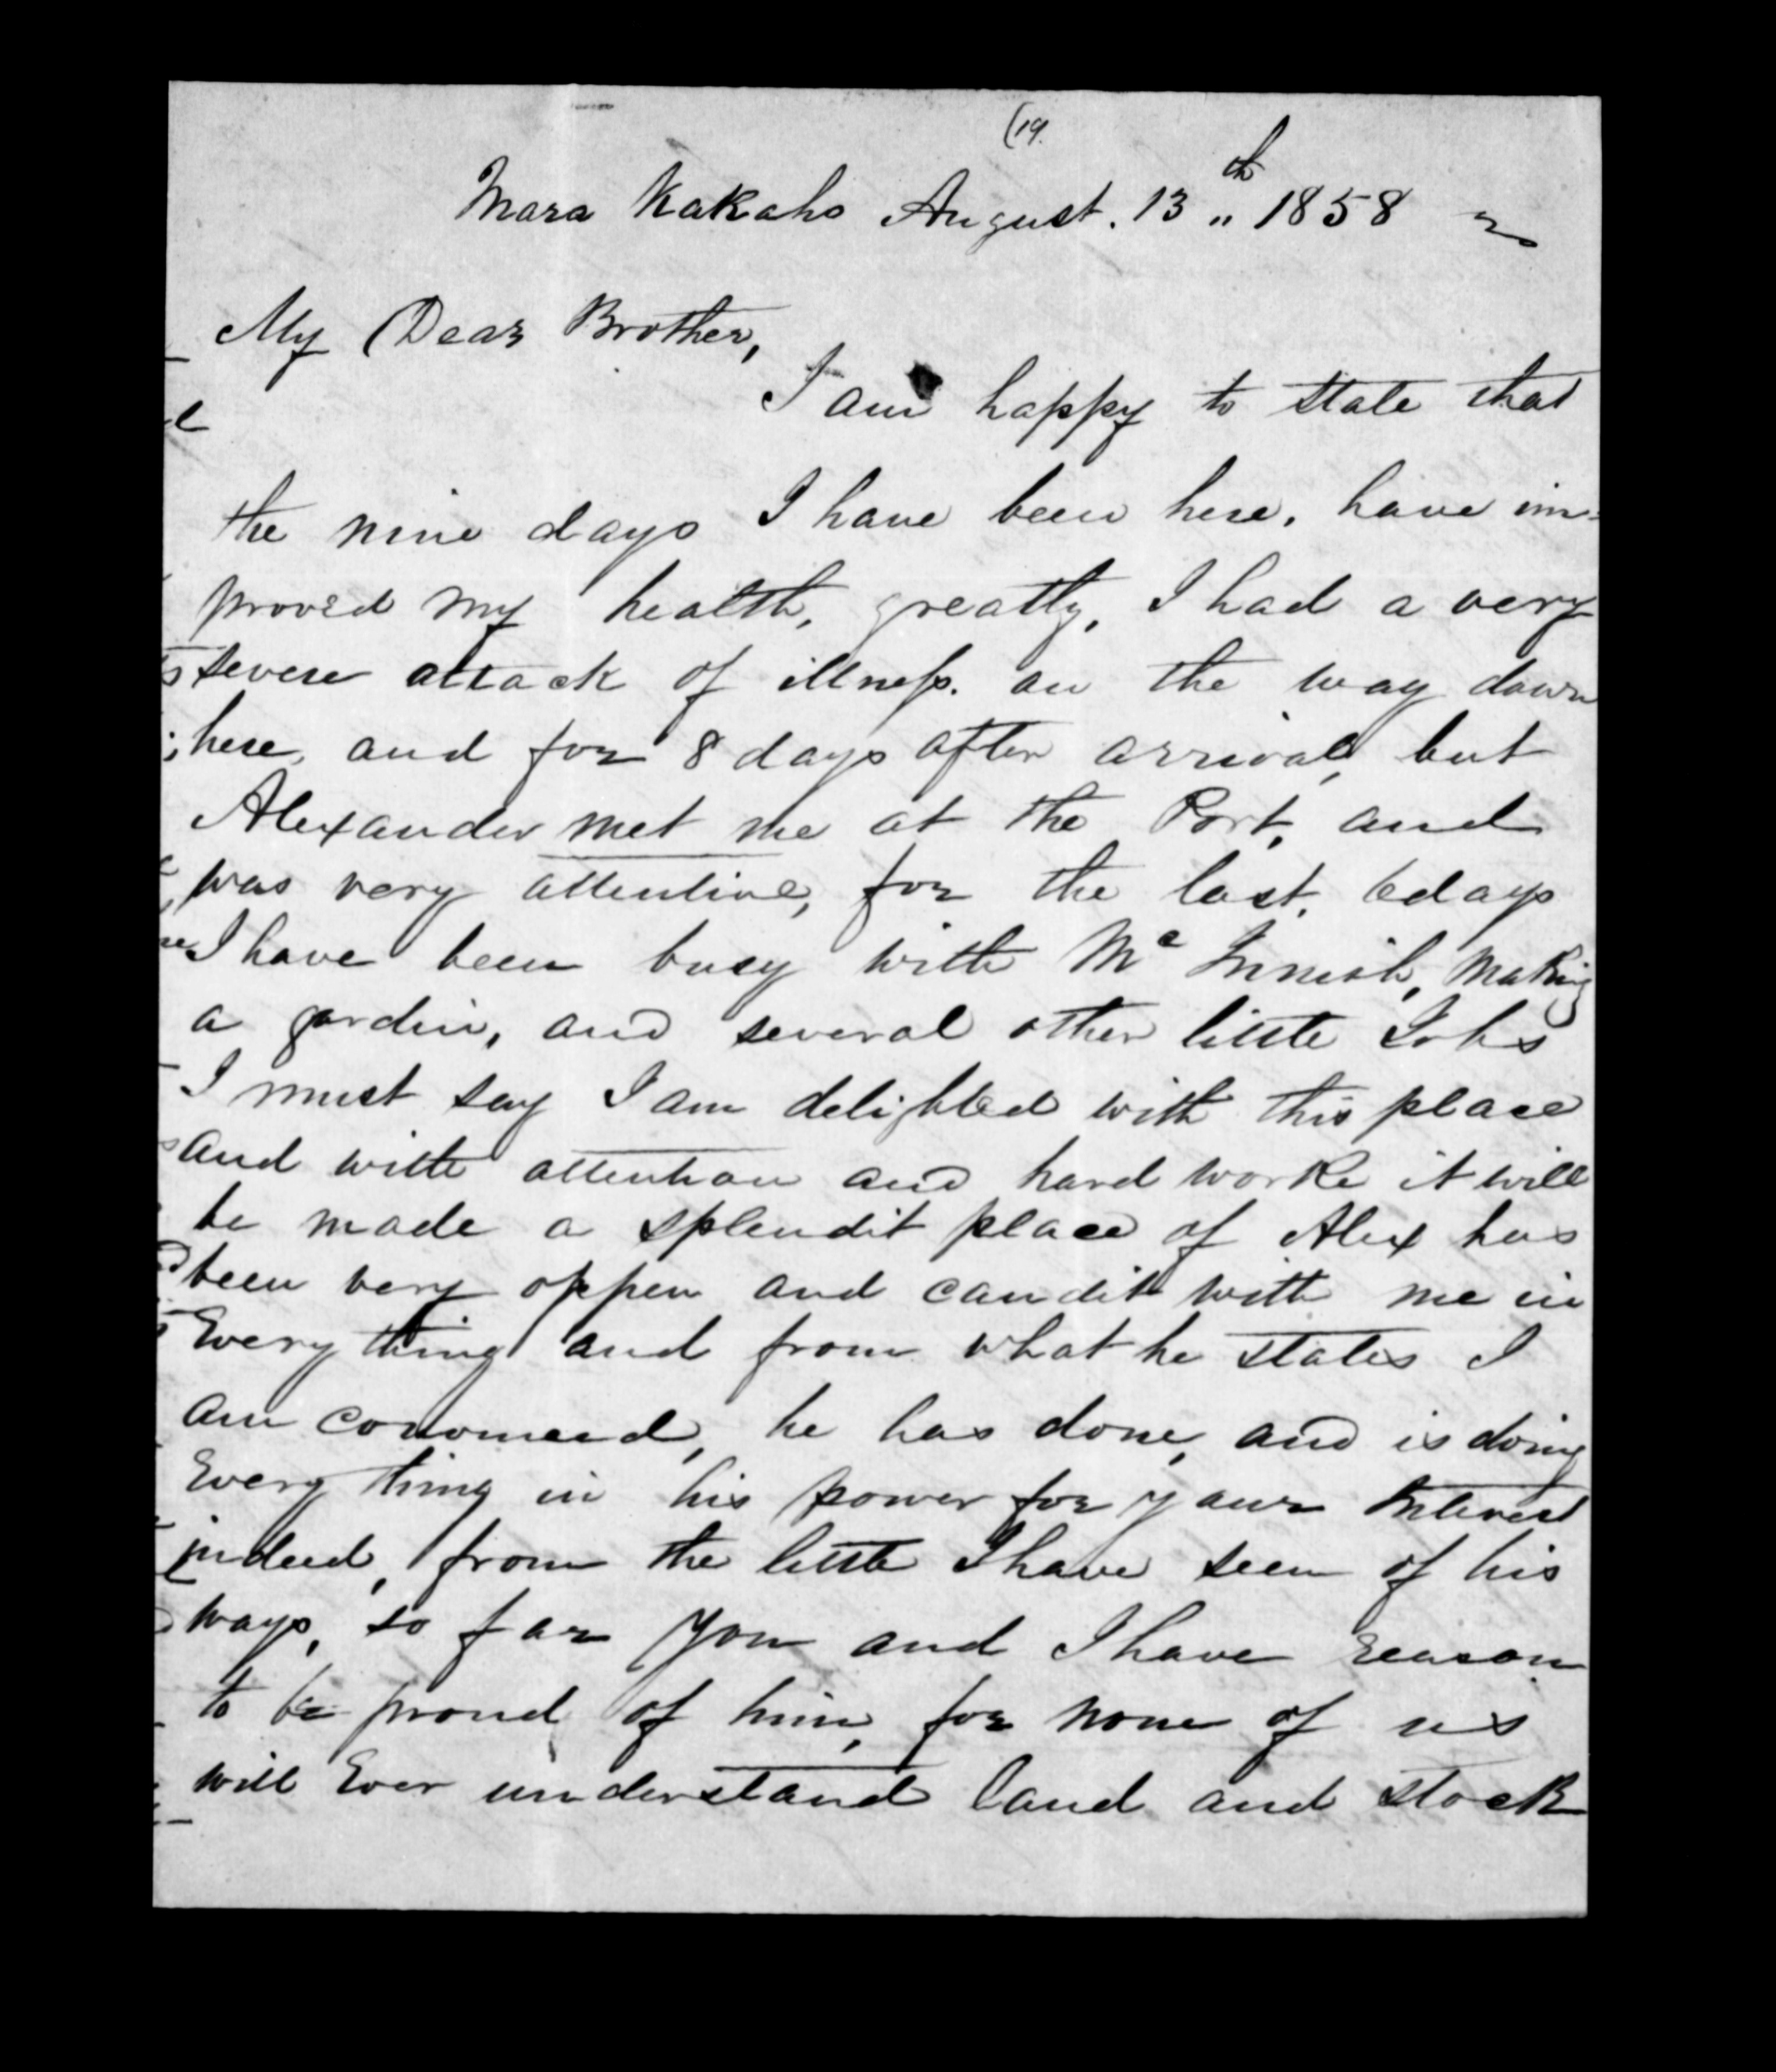 (19.
Mara Kakaho August. 13th " 1858
My Dear Brother,
I am happy to state that
the nine days I have been here, have im=
proved my health, greatly, I had a very
severe attack of illness. on the way down
here, and for 8 days after arrival, but
Alexander met me at the Port, and
was very attentive, for the last, 6 days
I have been busy with Mc Innish, making
a garden, and several other little Jobs
I must say I am delighted with this place
and with attention and hard worke it will
be made a splendit place of Alex has
been very oppen and candit with me in
Every thing and from what he states I
am convinced, he has done, and is doing
Every thing in his power for your Interest
indeed, from the little I have seen of his
ways, so far you and I have reason
to be proud of him, for none of us
will Ever understand land and stock